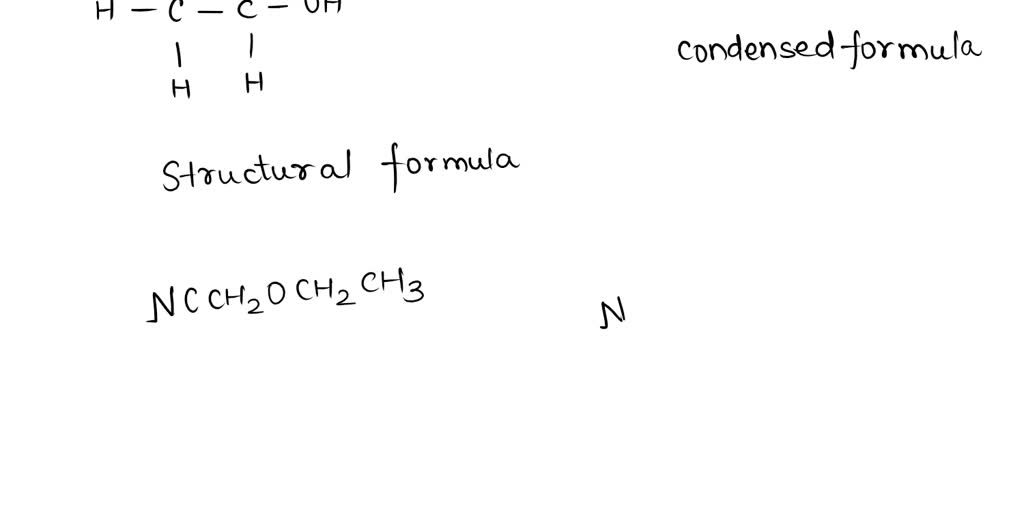 H – C – C – OH
| |
H H
condensed formula
Structural formula
NCCH₂OCH₂CH₃
N